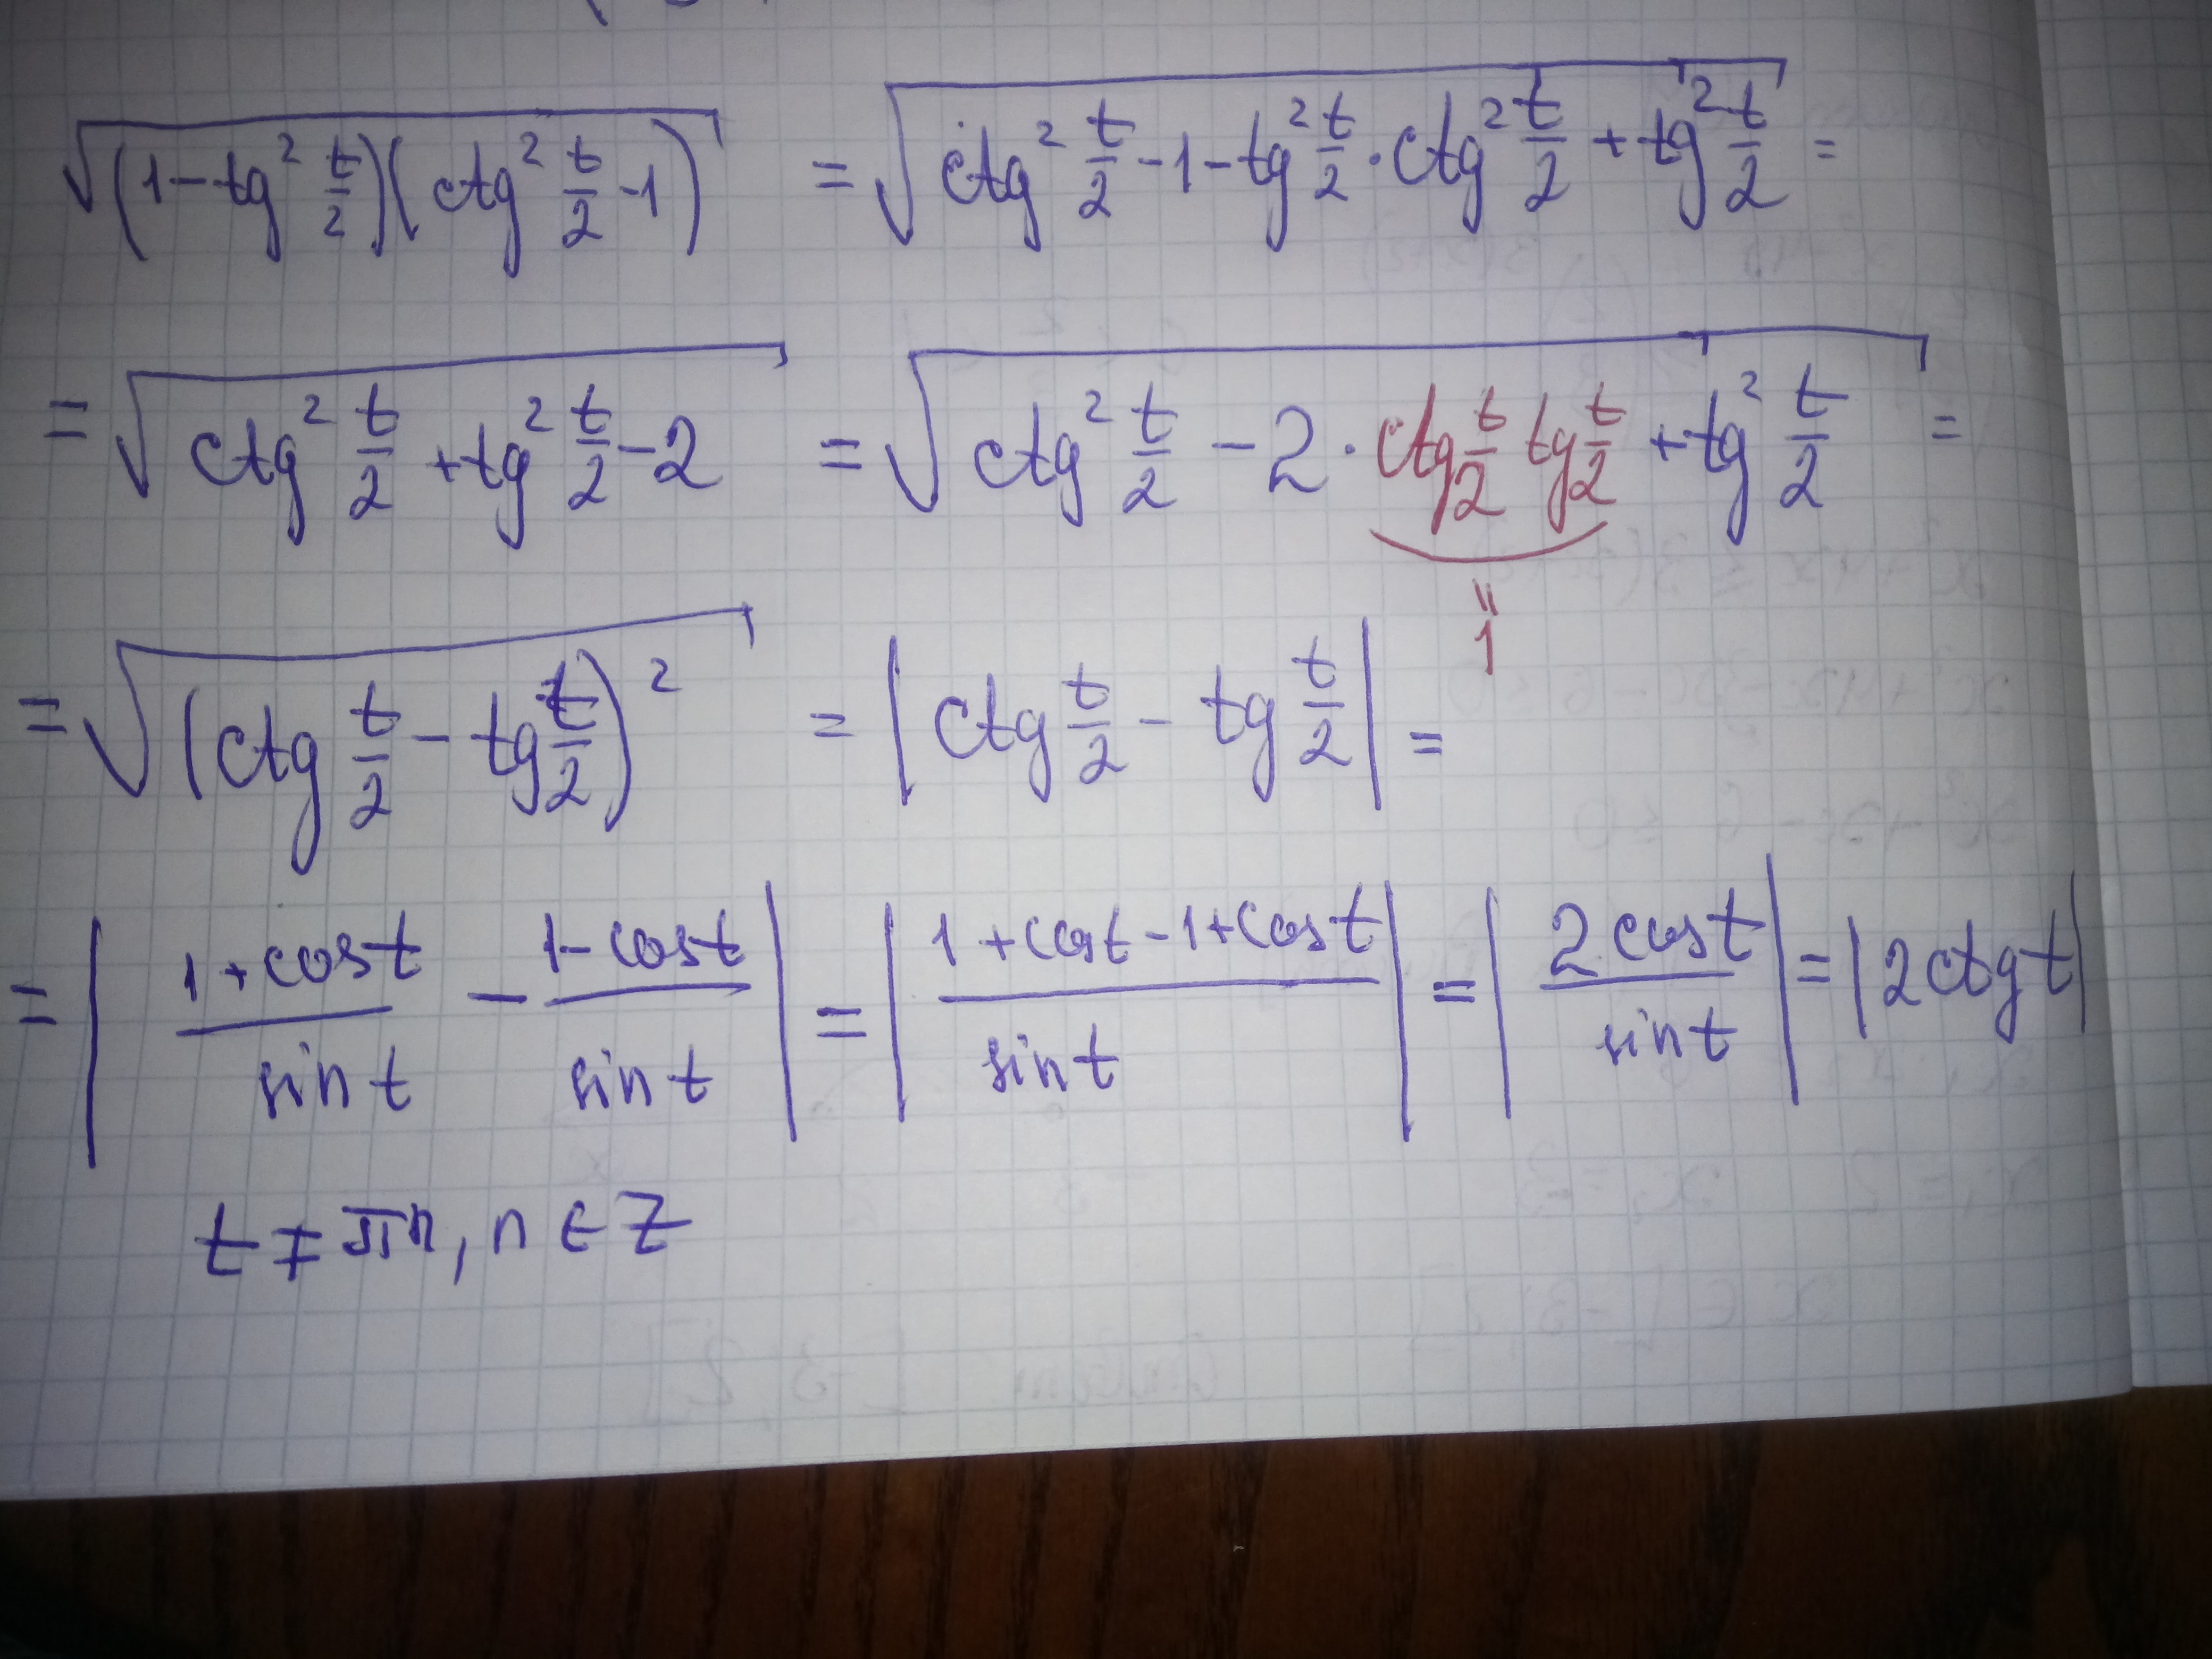 √((1-tg² t/2)(ctg² t/2 -1)) = √(ctg² t/2 -1-tg² t/2 · ctg² t/2 + tg² t/2) =
= √(ctg² t/2 +tg² t/2 -2) = √(ctg² t/2 - 2 · ctg t/2 tg t/2 + tg² t/2) =
"
1
= √((ctg t/2 - tg t/2)²) = |ctg t/2 - tg t/2| =
= |(1+cost)/(sint) - (1-cost)/(sint)| = |(1+cost-1+cost)/(sint)| = |(2cost)/(sint)| = |2ctgt|
t ≠ πn, n ∈ Z